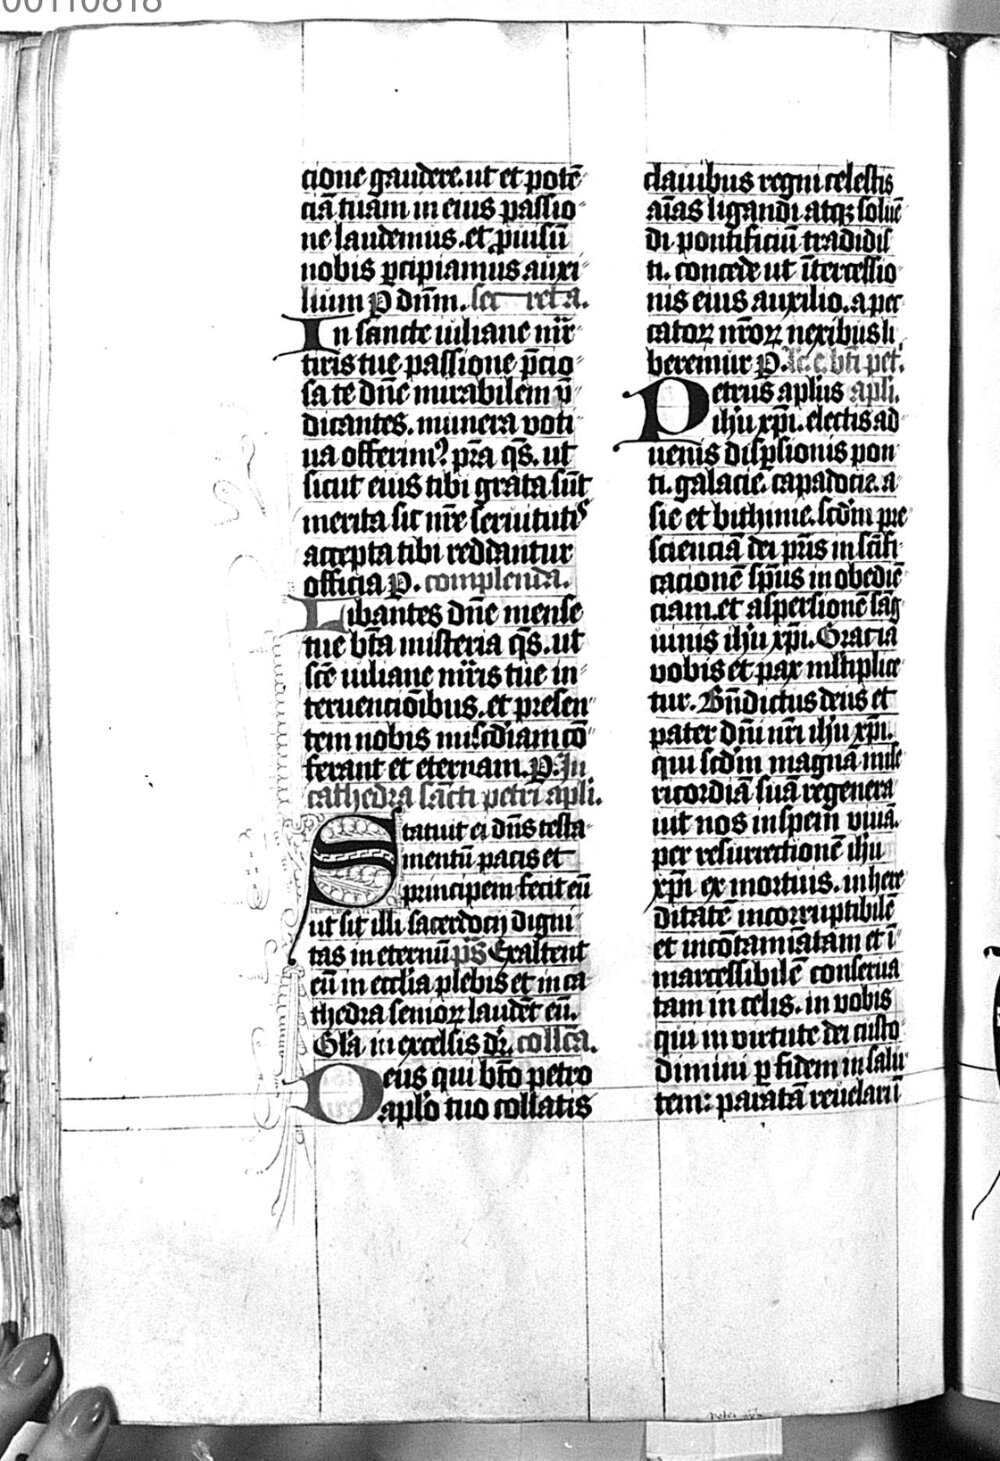 00110818
cione gaudere. ut et potē
ciā tuam in eius passio
ne laudemus. et ꝓ piusū
nobis ꝑcipiamus auxi
lium P dn̄m. secreta.
In sancte iuliane mr̄
tiris tue passione p̄cio
sa te dn̄e mirabilem p̄
dicantes. munera voti
ua offerimꝰ pr̄a qs̄. ut
sicut eius tibi grata sūt
merita sic nr̄e seruitutis
accepta tibi reddantur
officia P. complenda.
Libantes dn̄e mense
tue bt̄a misteria qs̄. ut
sc̄e iuliane mr̄is tue in
teruencōibus. et presen
tem nobis mis̄cdiam cō
ferant et eternam. P. In
cathedra sācti petri apl̄i.
Statuit ei dn̄s testa
mentū pacis et
principem fecit eū
ut sit illi sacerdocij digni
tas in eternū p̄s Exaltent
eū in eccl̄ia plebis et in ca
thedra senioꝝ laudēt eū.
Gl̄a in excelsis dr̄. coll̄ca.
Deus qui bt̄o petro
apl̄o tuo collatis
clauibus regni celestis
aīas ligandi atqꝫ soluē
di pontificiū tradidis
ti. concede ut ītercessio
nis eius auxilio. a pec
catoꝝ nr̄oꝝ nexibus li
beremur P. bt̄i pet.
Petrus apl̄us apl̄i.
ih̄u xp̄i. electis ad
uenis disꝑsionis pon
ti. galacie. capadocie. a
sie et bithinie. scd̄m pre
scienciā dei pr̄is in sc̄ifi
cacionē sp̄us in obediē
ciam. et aspersionē sāg
uinis ih̄u xp̄i. Gracia
vobis et pax ml̄tiplice
tur. Bn̄dictus deus et
pater dn̄i nr̄i ih̄u xp̄i.
qui scd̄m magnā mise
ricordiā suā regenera
uit nos in spem viuā.
per resurrectionē ih̄u
xp̄i ex mortuis. in here
ditatē incorruptibilē
et incōtamīatam et ī
marcessibilē conserua
tam in celis. in vobis
qui in virtute dei custo
dimini ꝑ fidem in salu
tem: paratā reuelari